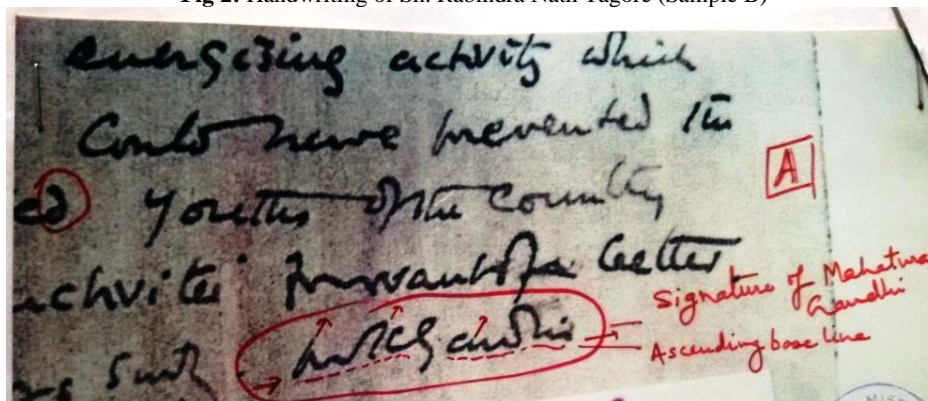 Fig 2: Handwriting of Sh. Rabindra Nath Tagore (Sample B)
energising activity which
Could have prevented the
ed youths of the Country
A
activities for want of a better
Signature of Mahatma
Gandhi
mkgandhi
Ascending base line